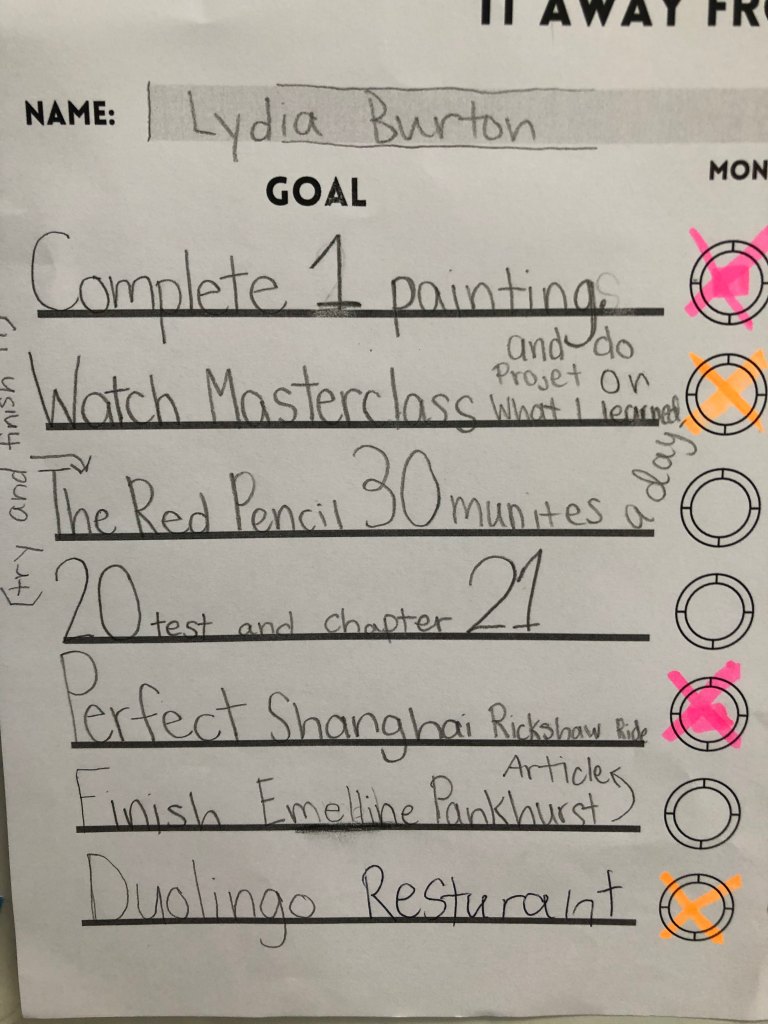 IT AWAY FR
NAME: Lydia Burton
GOAL
MON
Complete 1 painting.
and do
Projet on
Watch Masterclass What I learned
The Red Pencil 30 munites a day
(try and finish it)
20 test and chapter 21
Perfect Shanghai Rickshaw Ride
Articles
Finish Emelline Pankhurst
Duolingo Resturant